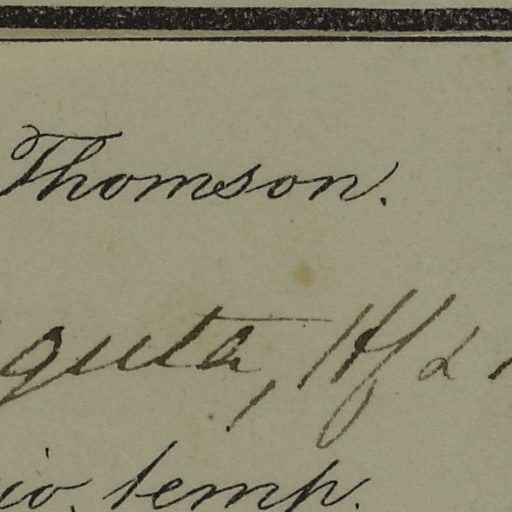 Thomson.
guta, Hf &
io, temp.